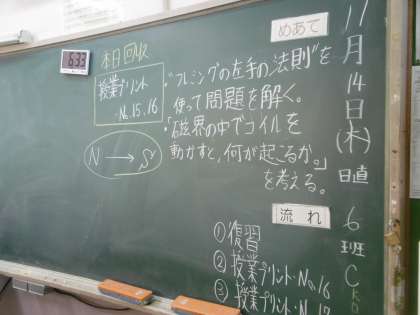 11月14日(木)日直6班C
めあて
・"フレミングの左手の法則"を
使って問題を解く。
・「磁界の中でコイルを
動かすと,何が起こるか。」
を考える。
流れ
①復習
②授業プリント・No.16
③授業プリント・No.17
本日回収
授業プリント
No.15,16
N→S